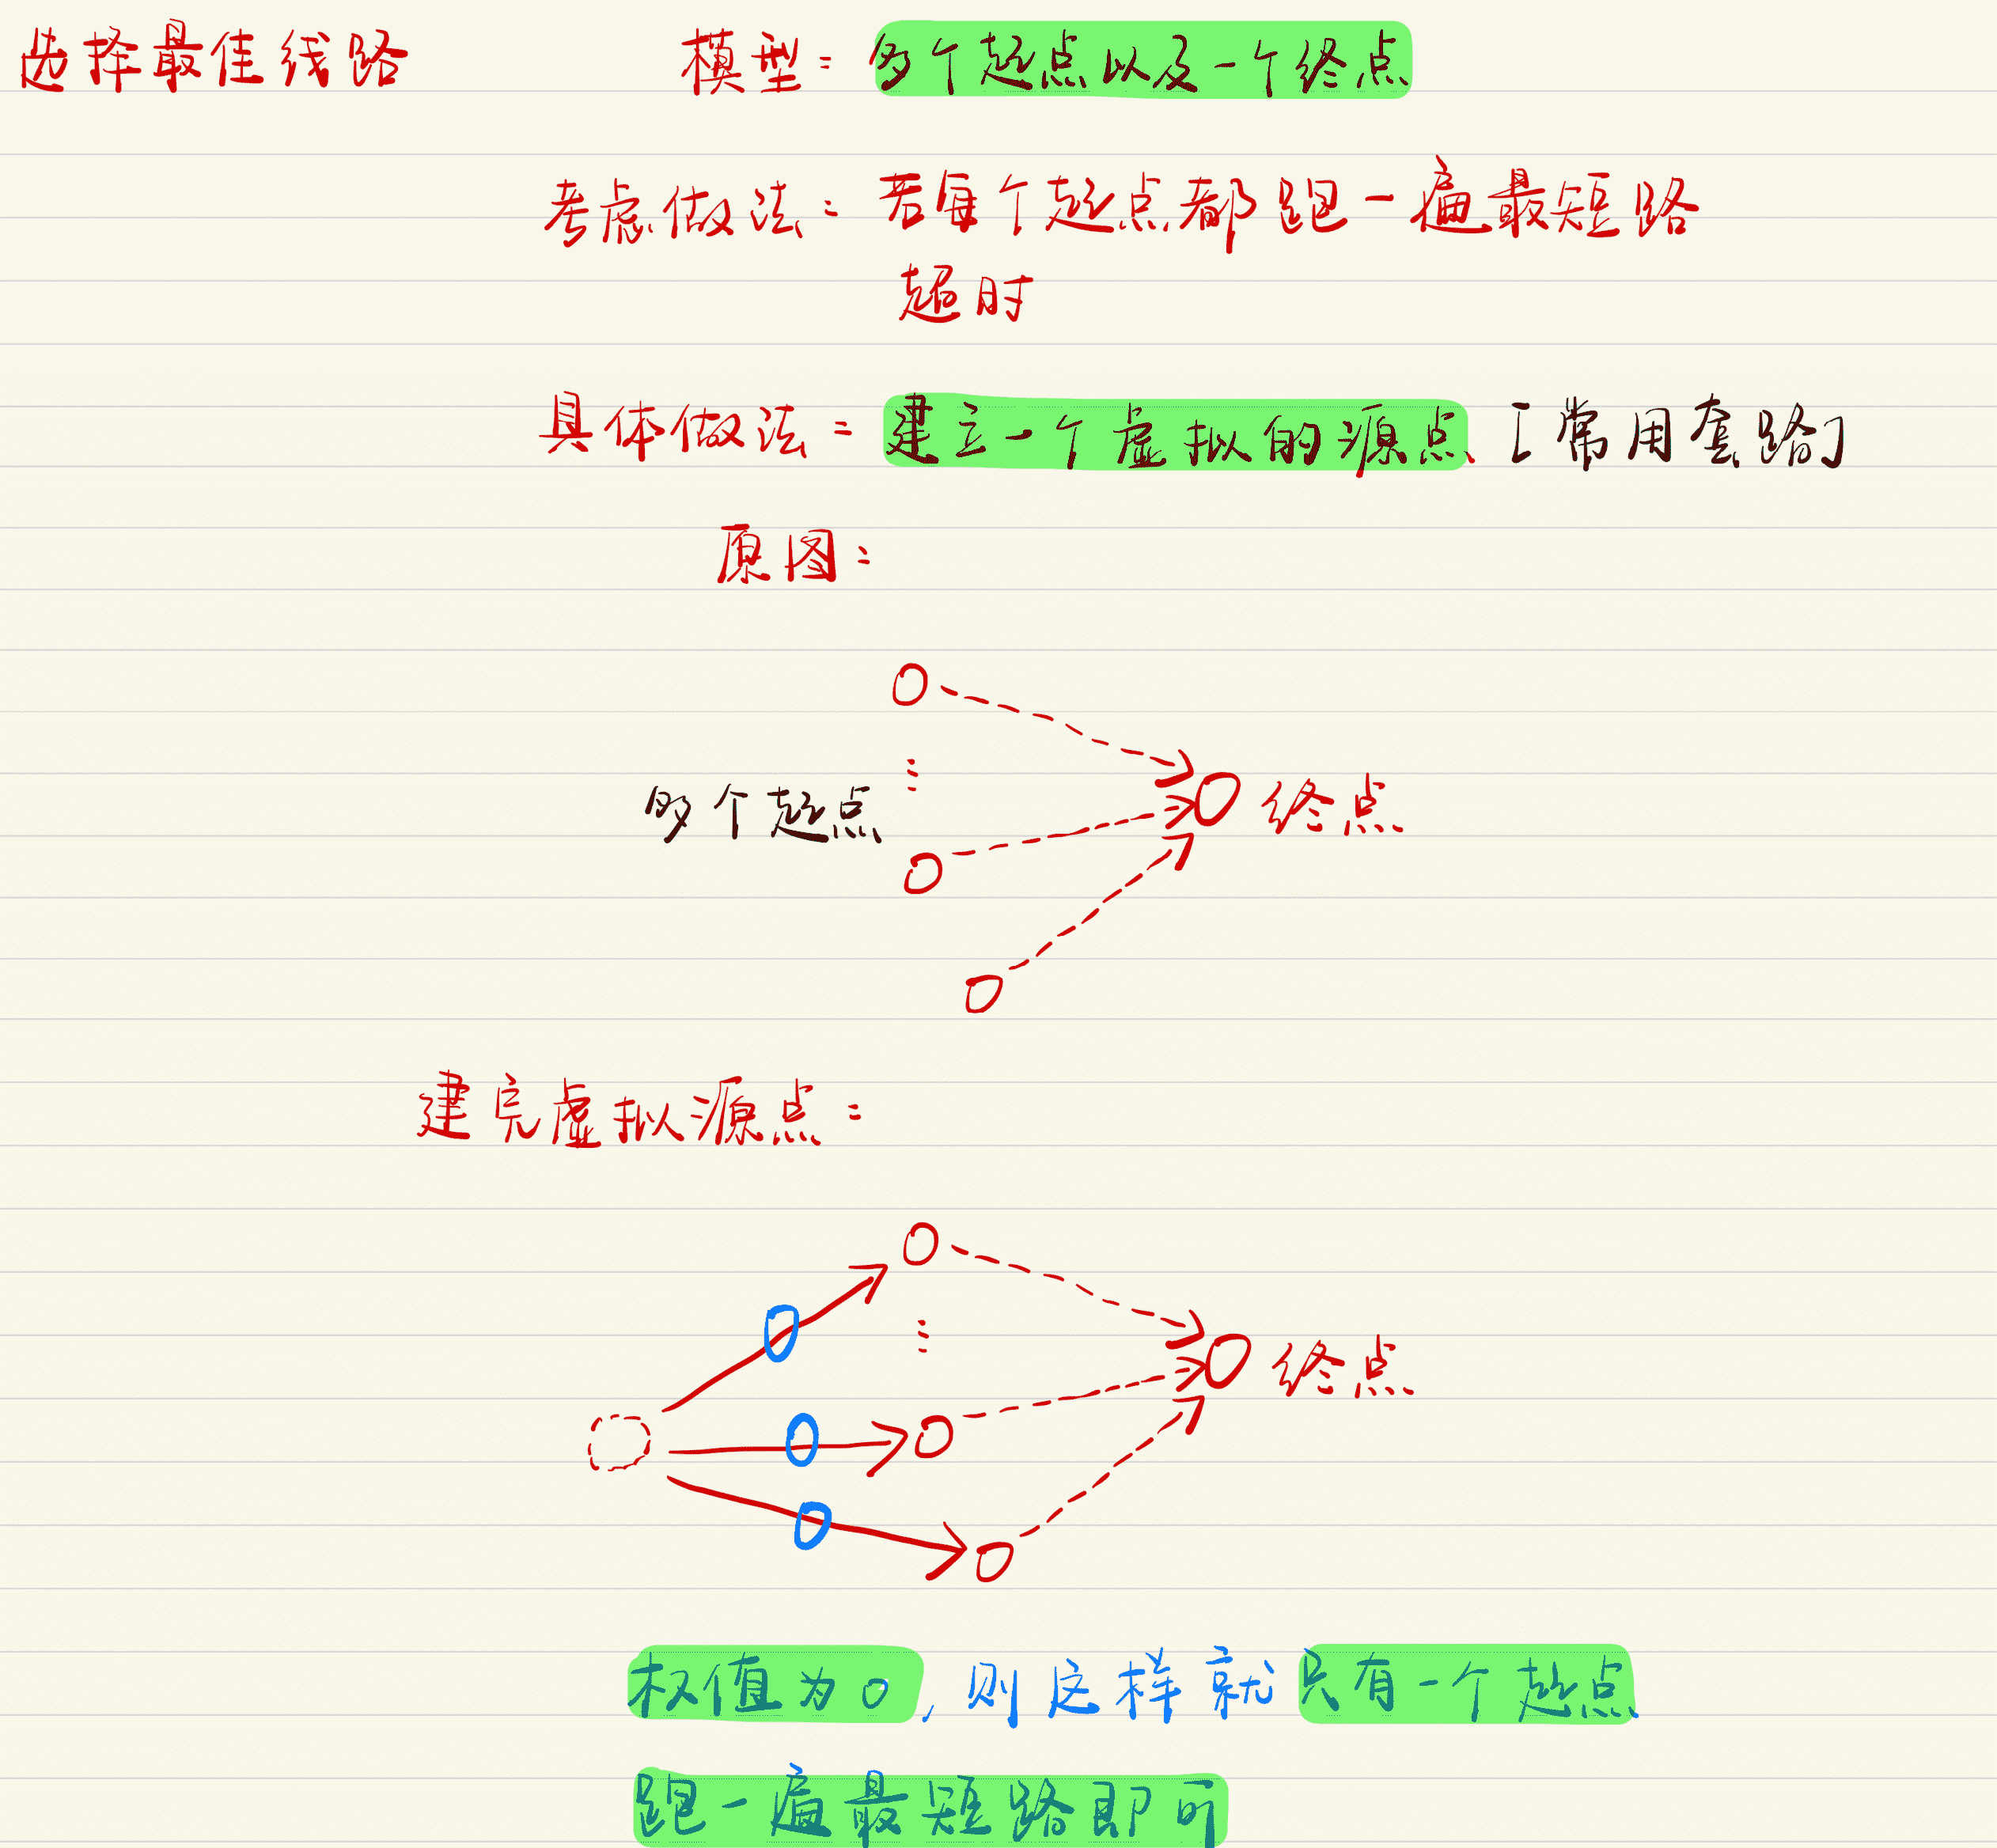 选择最佳线路 模型: 多个起点以及一个终点
考虑做法: 若每个起点都跑一遍最短路
超时
具体做法: 建立一个虚拟的源点 [常用套路]
原图:
多个起点 终点
建完虚拟源点:
0
终点
0
0
权值为0, 则这样就只有一个起点
跑一遍最短路即可